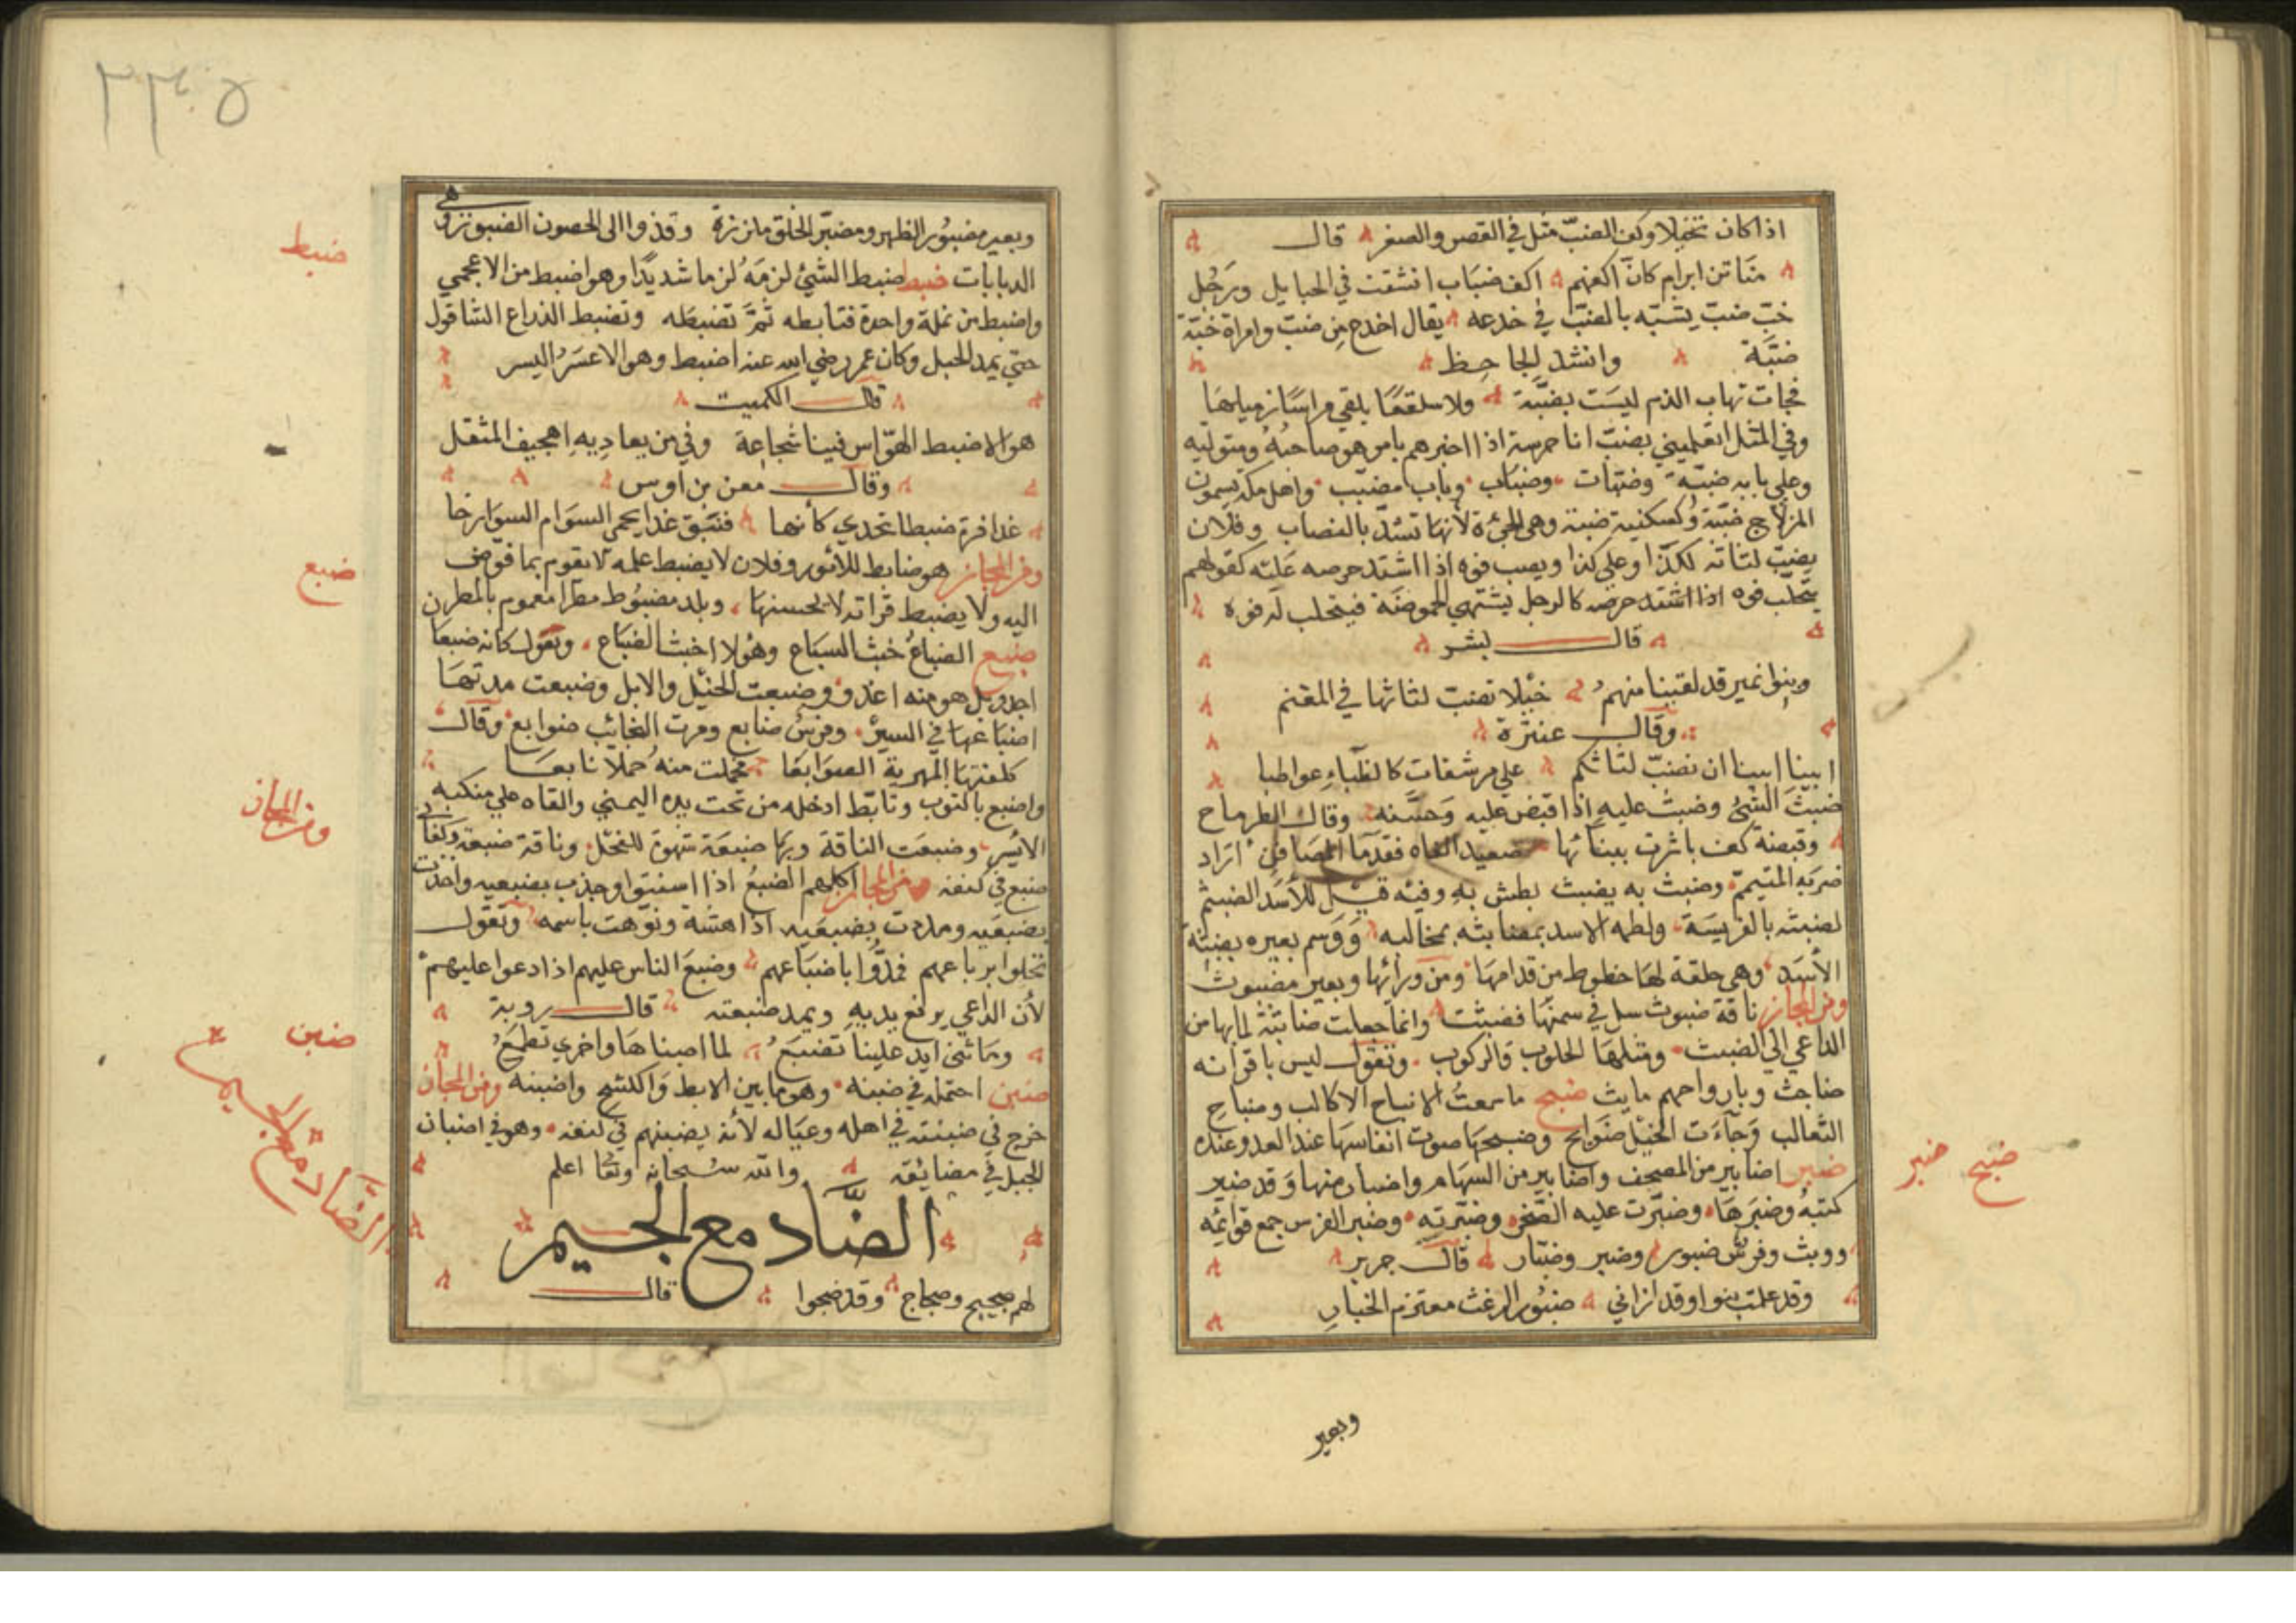 اذا كان بخيلا وكف الضب مثل في القصر والصغر قال
مناتن ابرام كان اكفهم اكف ضباب انشقت في الحبايل ورجل
خب ضب يشبه بالضب في خدعه يقال اخدع من ضب وامراة خبة
ضبة وانشد الجاحظ
فجات تهاب الذم ليست بضبة ولا سلقعا يلقي مراسا زميلها
وفي المثل اتعلمني بضب انا حرسته اذا اخبرهم بامر هو صاحبه ومتوليه
وعلي بابه ضبة وضبات وضباب وباب مضبب واهل مكة يسمون
المزلاج ضبة ولسكينه ضبة وهي الجزءة لانها تشد بالنصاب وفلان
يضب لثاته لكذا وعلي كذا ويضب فوه اذا اشتد حرصه عليه كقولهم
يتحلب فوه اذا اشتد حرصه كالرجل يشتهي الحموضة فيتحلب له فوه
قال بشر
وبنوا نمير قد لقينا منهم خيلا تضب لثاثها في المغنم
وقال عنترة
ابينا ابينا ان تضب لثاتكم علي مرشفات كالظباء عواطيا
ضبث الشئ وضبث عليه اذا قبض عليه وجسه وقال الطرماح
وقبضة كف باشرت ببنانها صعيد الفاه فقد ما المصافن اراد
ضربه المتيمم وضبث به يضبث بطش به وفيه قيل للاسد الضبثم
لضبثه بالفريسة ولطمه الاسد بمضابثه بمخالبه ووسم بعيره بضبثة
الاسد وهي حلقة لها خطوط من قدامها ومن ورائها وبعير مضبوث
ومن المجاز ناقة ضبوث سل في سمنها فضبثت وانما جعلت ضابثة لما بها من
الداعي الي الضبث ومثلها الحلوب والركوب وتقول ليس باقرانه
ضابث وبارواحهم مايث ضبح ما سمعت الا نباح الاكالب وضباح
الثعالب وجاءت الخيل ضوابح وضبحها صوت انفاسها عند العدو عنده
ضبر اضابير من المصحف واضابير من السهام واضبار منها وقد ضبر
كتبه وضبرها وضبرت عليه الصخر وضبرته وضبر الفرس جمع قوائمه
ووبث وفرس ضبور وضبر وضبار قال جرير
وقد علمت بنوا وقد ازاني ضبور الرغث معتزم الخبار
وبعير
ضبح ضبر
٢٣٠٥
وبعير مضبور الظهر ومضبر الخلق ملززة وقذوا الى الحصون الضبور وهي
الدبابات ضبط ضبط الشئ لزمه لزما شديدا وهو اضبط من الاعمى
واضبط من نملة واحدة فتابطه ثم تضبطه وتضبط الذراع الشاقول
حتي يمد الحبل وكان عمر رضي الله عنه اضبط وهو الاعسر اليسر
قال الكميت
هو الاضبط الهواس فينا شجاعة وفي من يعاديه اهجيف المثقل
وقال معن بن اوس
عذافرة ضبطا تخدي كانها فنيق غدا يحمي السوام السوارحا
ومن المجاز هو ضابط للامور وفلان لا يضبط عمله لا يقوم بما فوض
اليه ولا يضبط قراته لا يحسنها وبلد مضبوط مطرا معموم بالمطر
ضبع الضباع خبث السباع وهؤلا اخبث الضباع وتقول كانه ضبعا
اجدو بل هو منه اغدر وضبعت الخيل والابل وضبعت مدتها
اضباعها في السير وفرس ضابع ومرت النجائب ضوابع وقال
كلفتها المهرية الضوابعا فحملت منه حملا نابعا
واضبع بالثوب وتابط ادخله من تحت يده اليمني والقاه علي منكبه
الايسر وضبعت الناقة وبها ضبعة شهوة للفحل وناقة ضبعة وكنا في
ضبع في كنفه ومن المجاز اكلهم الضبع اذا اسنتوا وجذب بضبعيه واخذت
بضبعيه ومددت بضبعيه اذا نعشته ونوهت باسمه وتقول
تحلوا برباعهم فمدوا باضباعهم وضبع الناس عليهم اذا دعوا عليهم
لان الداعي يرفع يديه ويمد ضبعيه قال روبة
وما تني ايد علينا تضبع لما اصبناها واخري تطمع
ضبن احتمله في ضبنه وهو ما بين الابط والكشح واضبنه ومن المجاز
خرج في ضبنته في اهله وعياله لانه يضبنهم في كنفه وهو في اضبان
الجبل في مضايقه والله سبحانه وتعا اعلم
الضاد مع الجيم
لهم ضجيج وضجاج وقد ضجوا قال
ضبط
ضبع
ومن المجاز
ضبن
الضاد مع الجيم